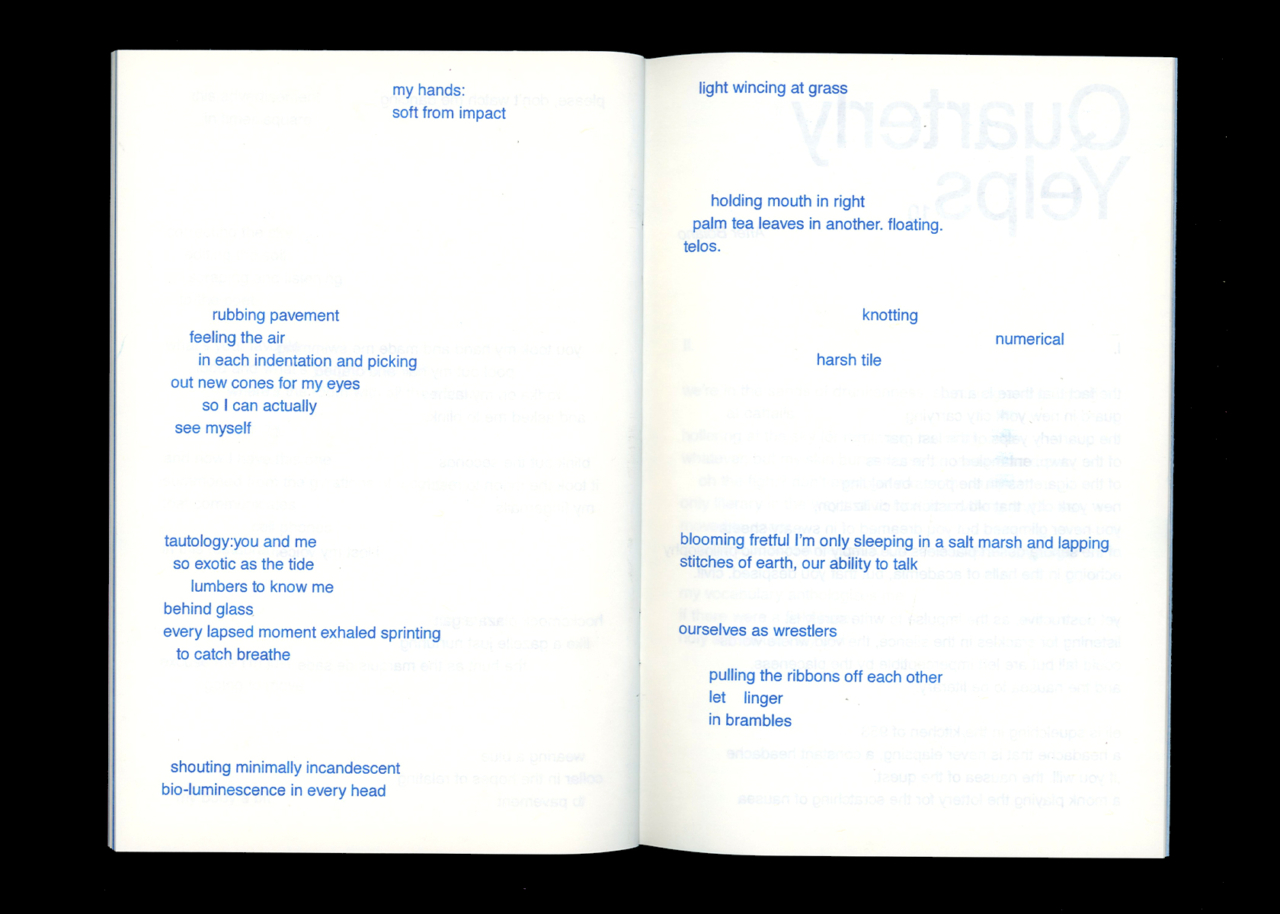 my hands:
soft from impact
rubbing pavement
feeling the air
in each indentation and picking
out new cones for my eyes
so I can actually
see myself
tautology:you and me
so exotic as the tide
lumbers to know me
behind glass
every lapsed moment exhaled sprinting
to catch breathe
shouting minimally incandescent
bio-luminescence in every head
light wincing at grass
holding mouth in right
palm tea leaves in another. floating.
telos.
knotting
numerical
harsh tile
blooming fretful I'm only sleeping in a salt marsh and lapping
stitches of earth, our ability to talk
ourselves as wrestlers
pulling the ribbons off each other
let linger
in brambles
Quarterly
Yelps